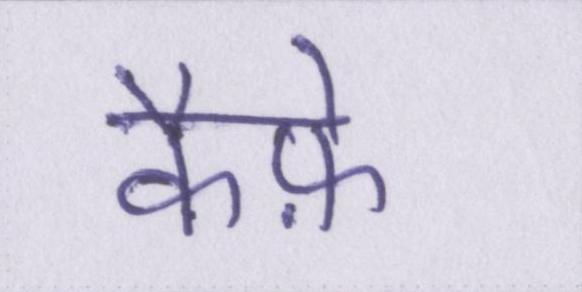 कैफ़े